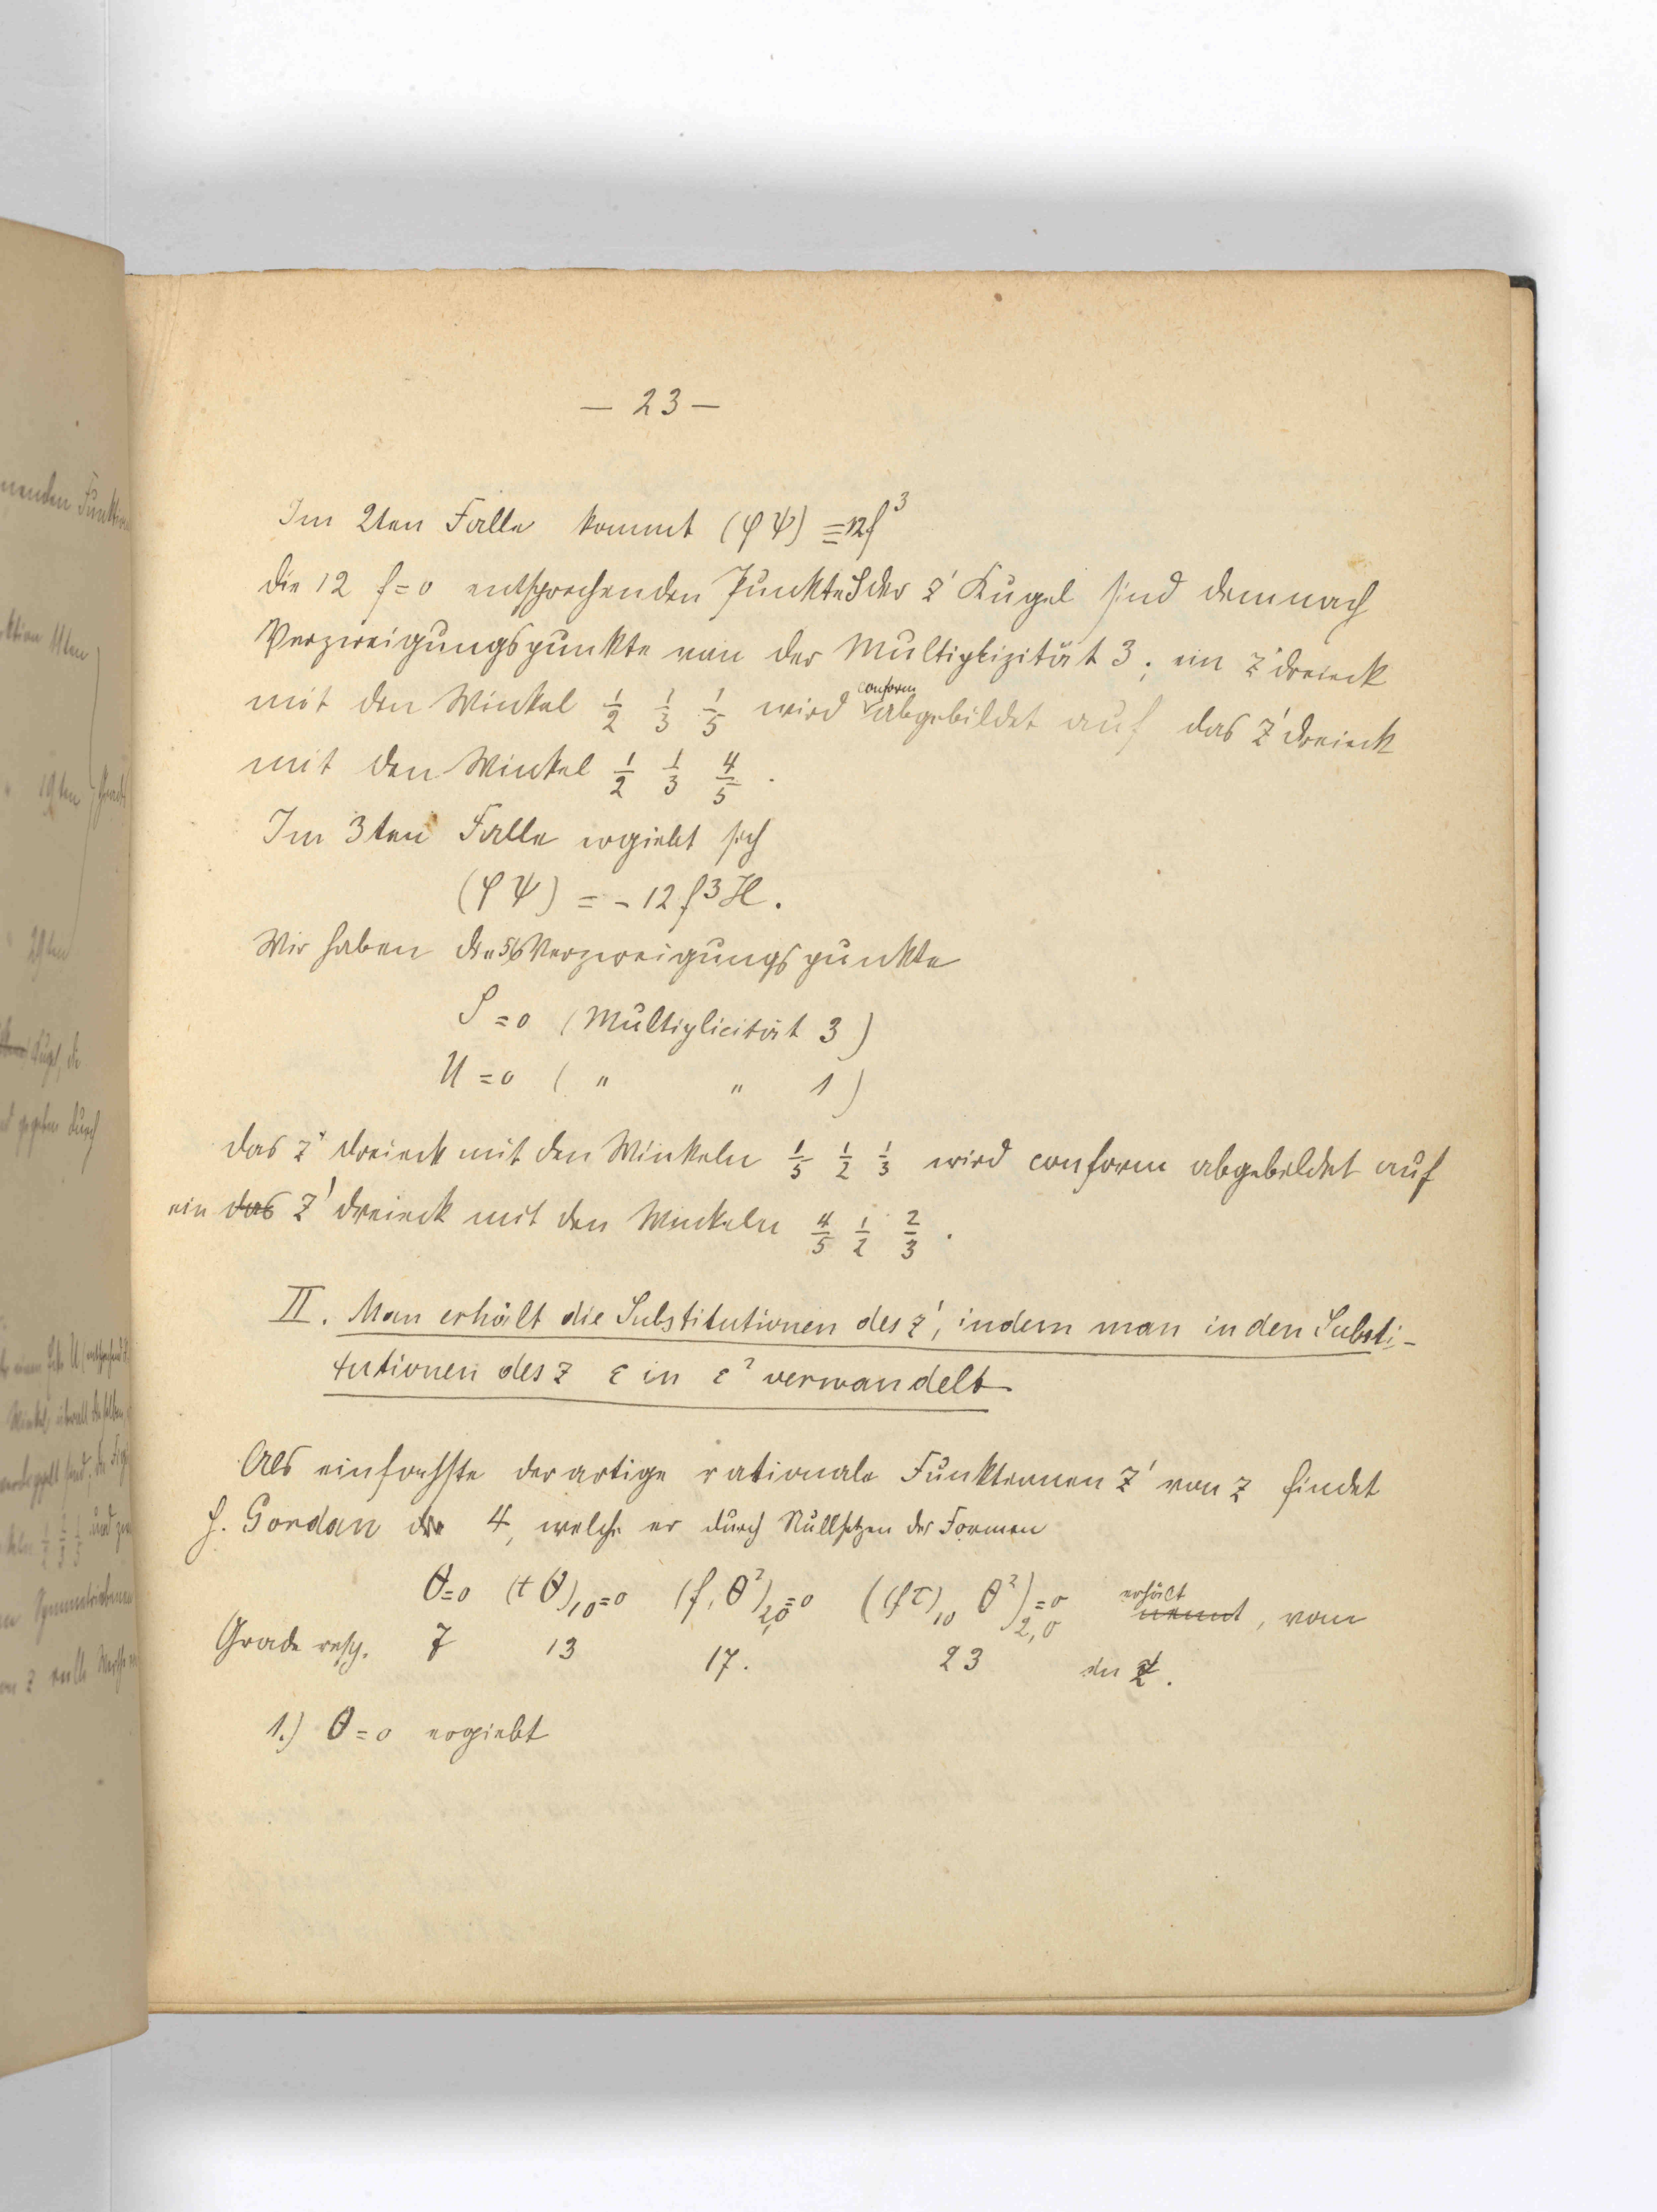 — 23 —
Im 2ten Falle kommt (φ ψ) = 12 f³
die 12 f = 0 entsprechenden Punkte S der z' Kugel sind demnach
Verzweigungspunkte von der Multiplizität 3; ein z dreieck
mit den Winkel 1/2 1/3 1/5 wird conform abgebildet auf das z' dreieck
mit den Winkel 1/2 1/3 4/5.
Im 3ten Falle ergiebt sich
(φ ψ) = - 12 f³ H.
Wir haben die 56 Verzweigungspunkte
S = 0 (Multiplicität 3)
U = 0 ( " " 1)
das z dreieck mit den Winkeln 1/5 1/2 1/3 wird conform abgebildet auf
ein das z' dreieck mit den Winkeln 4/5 1/2 2/3.
II. Man erhält die Substitutionen des z', indem man in den Substi-
tutionen des z ε in ε² verwandelt
Als einfachste derartige rationale Funktionen z' von z findet
H. Gordan die 4, welche er durch Nullsetzen der Formen
θ=0 (t θ)₁₀=0 (f, θ²)₂,₀=0 ((fτ)₁₀ θ²)₂,₀=0 erhält nennt, vom
Grade resp. 7 13 17. 23 in z.
1.) θ = 0 ergiebt